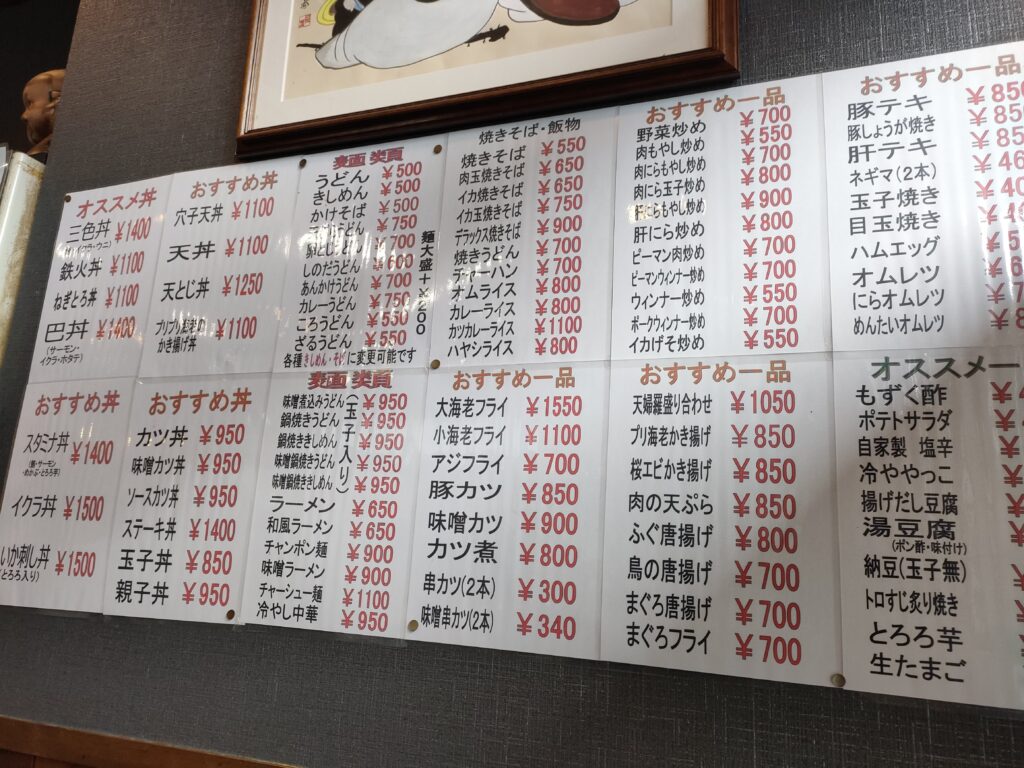 オススメ丼
三色丼 ¥1400
鉄火丼 ¥1100
ねぎとろ丼 ¥1100
巴丼 ¥1400
(サーモン・
イクラ・ホタテ)
おすすめ丼
穴子天丼 ¥1100
天丼 ¥1100
天とじ丼 ¥1250
かき揚げ丼 ¥1100
麺類
うどん ¥500
きしめん ¥500
かけそば ¥500
¥750
¥700
しのだうどん ¥600
あんかけうどん ¥700
カレーうどん ¥750
ころうどん ¥550
ざるうどん ¥550
各種きしめん・そばに変更可能です
麺大盛+¥200
焼きそば・飯物
焼きそば ¥550
肉玉焼きそば ¥650
イカ焼きそば ¥650
イカ玉焼きそば ¥750
デラックス焼きそば ¥900
焼きうどん ¥700
チャーハン ¥700
オムライス ¥800
カレーライス ¥800
カツカレーライス ¥1100
ハヤシライス ¥800
おすすめ一品
野菜炒め ¥700
肉もやし炒め ¥550
肉にらもやし炒め ¥700
肉にら玉子炒め ¥800
肝にらもやし炒め ¥700
肝にら炒め ¥900
ピーマン肉炒め ¥700
ピーマンウィンナー炒め ¥700
ウィンナー炒め ¥550
ポークウィンナー炒め ¥700
イカげそ炒め ¥550
おすすめ一品
豚テキ
豚しょうが焼き
肝テキ
ネギマ(2本)
玉子焼き
目玉焼き
ハムエッグ
オムレツ
にらオムレツ
めんたいオムレツ
おすすめ丼
スタミナ丼 ¥1400
イクラ丼 ¥1500
いか刺し丼 ¥1500
(とろろ入り)
おすすめ丼
カツ丼 ¥950
味噌カツ丼 ¥950
ソースカツ丼 ¥950
ステーキ丼 ¥1400
玉子丼 ¥850
親子丼 ¥950
麺類
味噌煮込みうどん ¥950
鍋焼きうどん ¥950
鍋焼ききしめん ¥950
味噌鍋焼きうどん ¥950
味噌鍋焼ききしめん ¥950
(玉子入り)
ラーメン ¥650
和風ラーメン ¥650
チャンポン麺 ¥900
味噌ラーメン ¥900
チャーシュー麺 ¥1100
冷やし中華 ¥950
おすすめ一品
大海老フライ ¥1550
小海老フライ ¥1100
アジフライ ¥700
豚カツ ¥850
味噌カツ ¥900
カツ煮 ¥800
串カツ(2本) ¥300
味噌串カツ(2本) ¥340
おすすめ一品
天婦羅盛り合わせ ¥1050
プリ海老かき揚げ ¥850
桜エビかき揚げ ¥850
肉の天ぷら ¥850
ふぐ唐揚げ ¥800
鳥の唐揚げ ¥700
まぐろ唐揚げ ¥700
まぐろフライ ¥700
オススメ一
もずく酢
ポテトサラダ
自家製 塩辛
冷ややっこ
揚げだし豆腐
湯豆腐
(ポン酢・味付け)
納豆(玉子無)
トロすじ炙り焼き
とろろ芋
生たまご